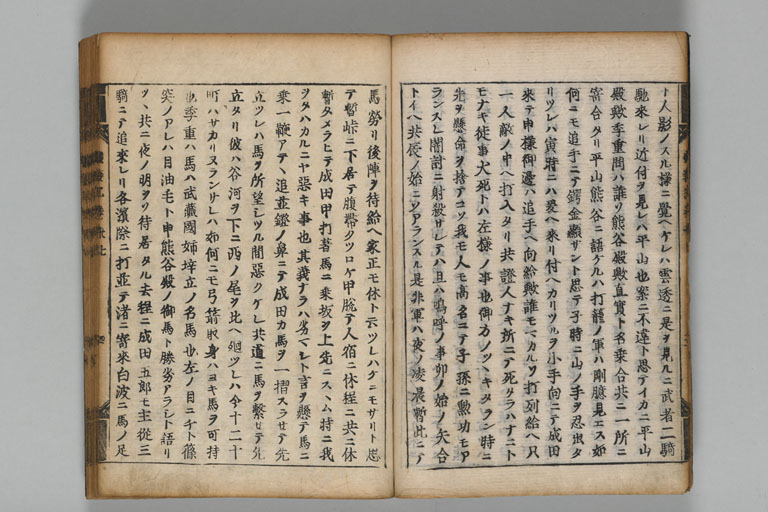 ト人影ノスル様ニ覺ヘケレハ雲透ニ是ヲ見ルニ武者一騎
馳來レリ近付ヲ見レハ平山也案ニ不違ト思テイカニ平山
殿歟季重問ハ誰ソ熊谷殿歟直實ト名乗合共ニ一所ニ
寄合タリ平山熊谷ニ語ケルハ打籠ノ軍ハ剛臆見エス如
何ニモ追手ニテ鍔金顯サント思テ子時ニ山ノ手ヲ忍出タ
リツレハ寅時ニハ爰ヘ來リ付ヘカリツルヲ小手向ニテ成田
來テ申様御邊ハ追手ヘ向給歟誰モヘカルソ打列給ヘ只
一人敵ノ中ヘ打入タリ共證人ナキ所ニテ死タラハナニト
モナキ徒事犬死トハ左様ノ事也御方ノツヽキタラン時ニ
先懸命ヲ捨テコソ我モ人モ高名ニテ子孫ニ勲功モア
ランスレ闇討ニ射殺サレテハ且ハ嗚呼ノ事卯ノ始ノ矢合
トイヘ共辰ノ始ニソアランスル是非軍ハ夜ノ凌晨暫此ニテ
馬勞リ後陣ヲ待給ヘ家正モ休ト云ツレハケニモサリト思
テ暫峠ニ下居テ腹帶クツロケ甲脱テ人宿ニ休程ニ共ニ休
暫タメラヒテ成田甲打著馬ニ乗坂ヲ上先ニスヽム時ニ我
ヲタハカルニヤ惡キ事也其義ナラハ劣マシト言ヲ懸テ馬ニ
乗一鞭アテヽ追並鐙ノ鼻ニテ成田カ馬ヲ一摺スラセテ先
立ツレハ馬ヲ所望シツル間惡クケレ共道ニ馬ヲ繋セテ先
立タリ彼ハ谷河ヲ下ニ西ノ尾ヲ比ヘ廻ツレハ今十二十
町ハサカリヌランサレハ如何ニモ弓箭取身ハヨキ馬ヲ可持
也季重ハ馬ハ武藏國姉埣立ノ名馬也左ノ目ニチト篠
突ノアレハ目油毛ト申熊谷殿ノ御馬ト勝劣アラシト語リ
ツヽ共ニ夜ノ明ヲソ待居タル去程ニ成田五郎モ主從三
騎ニテ追來レリ各濱際ニ打並テ渚ニ寄來白波ニ馬ノ足